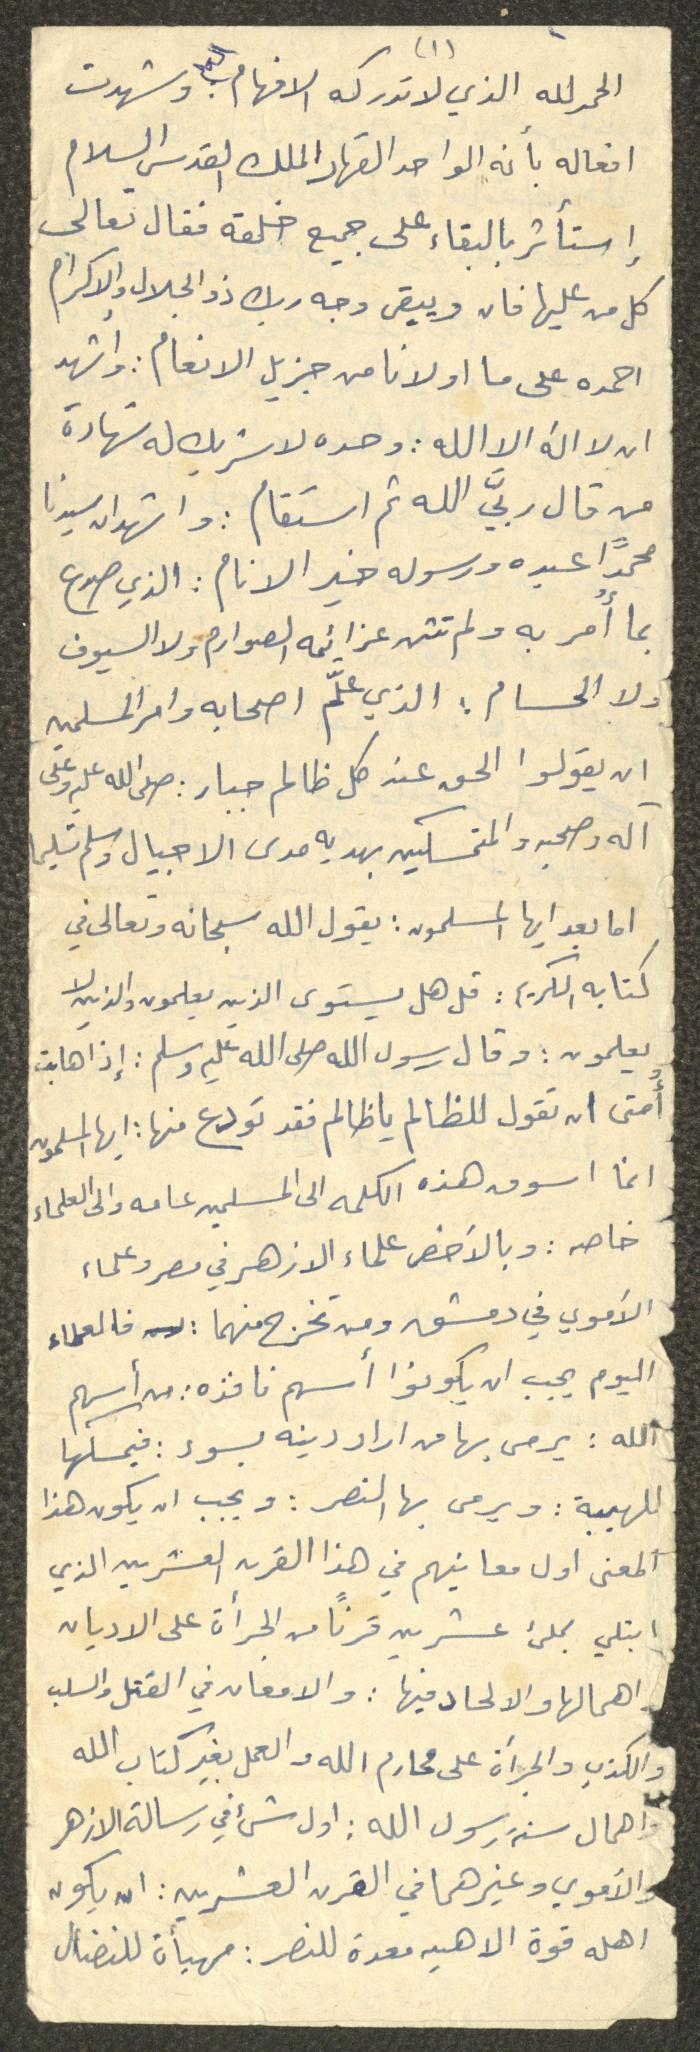 (١)
الحمد لله الذي لا تدركه الافهام: وشهدت
افعاله بأنه الواحد القهار الملك القدس السلام
إستأثر بالبقاء على جميع خلقه فقال تعالى
كل من عليها فان ويبقى وجه ربك ذو الجلال والإكرام
احمده على ما اولانا من جزيل الانعام: وأشهد
ان لا اله الا الله: وحده لا شريك له شهادة
من قال ربيَّ الله ثم استقام: واشهد ان سيدنا
محمدًا عبده ورسوله خير الانام: الذي صدع
بما أُمر به ولم تثن عزائمه الصوارم ولا السيوف
ولا الحسام: الذي علّم اصحابه وامر المسلمين
ان يقولوا الحق عند كل ظالم جبار: صلى الله عليه وعلى
آله وصحبه والمتمسكين بهديه مدى الاجيال وسلم تسليما
اما بعد ايها المسلمون: يقول الله سبحانه وتعالى في
كتابه الكريم: قل هل يستوى الذين يعلمون والذين لا
يعلمون: وقال رسول الله صلى الله عليه وسلم: إذا هابت
أُمتى ان تقول للظالم يا ظالم فقد تودع منها: ايها المسلمون
انما اسوق هذه الكلمه الى المسلمين عامه والى العلماء
خاصه: وبالأخص علماء الازهر في مصر وعلماء
الأموي في دمشق ومن تخرج منهما: فالعلماء
اليوم يجب ان يكونوا أسهم نافذه: من أسهم
الله: يرمى بها من اراد دينه بسوء: فيمسكها
للهيبة: ويرمى بها النصر: ويجب ان يكون هذا
المعنى اول معانيهم في هذا القرن العشرين الذي
ابتلي بملئ عشرين قرنًا من الجرأة على الاديان
واهمالها والالحاد فيها: والامعان في القتل والسلب
والكذب والجرأة على محارم الله والعمل بغير كتاب الله
واهمال سنة رسول الله: اول شئ في رسالة الازهر
والأموي وغيرهما في القرن العشرين: ان يكون
اهله قوة الاهيه معدة للنصر: مهيأة للنضال